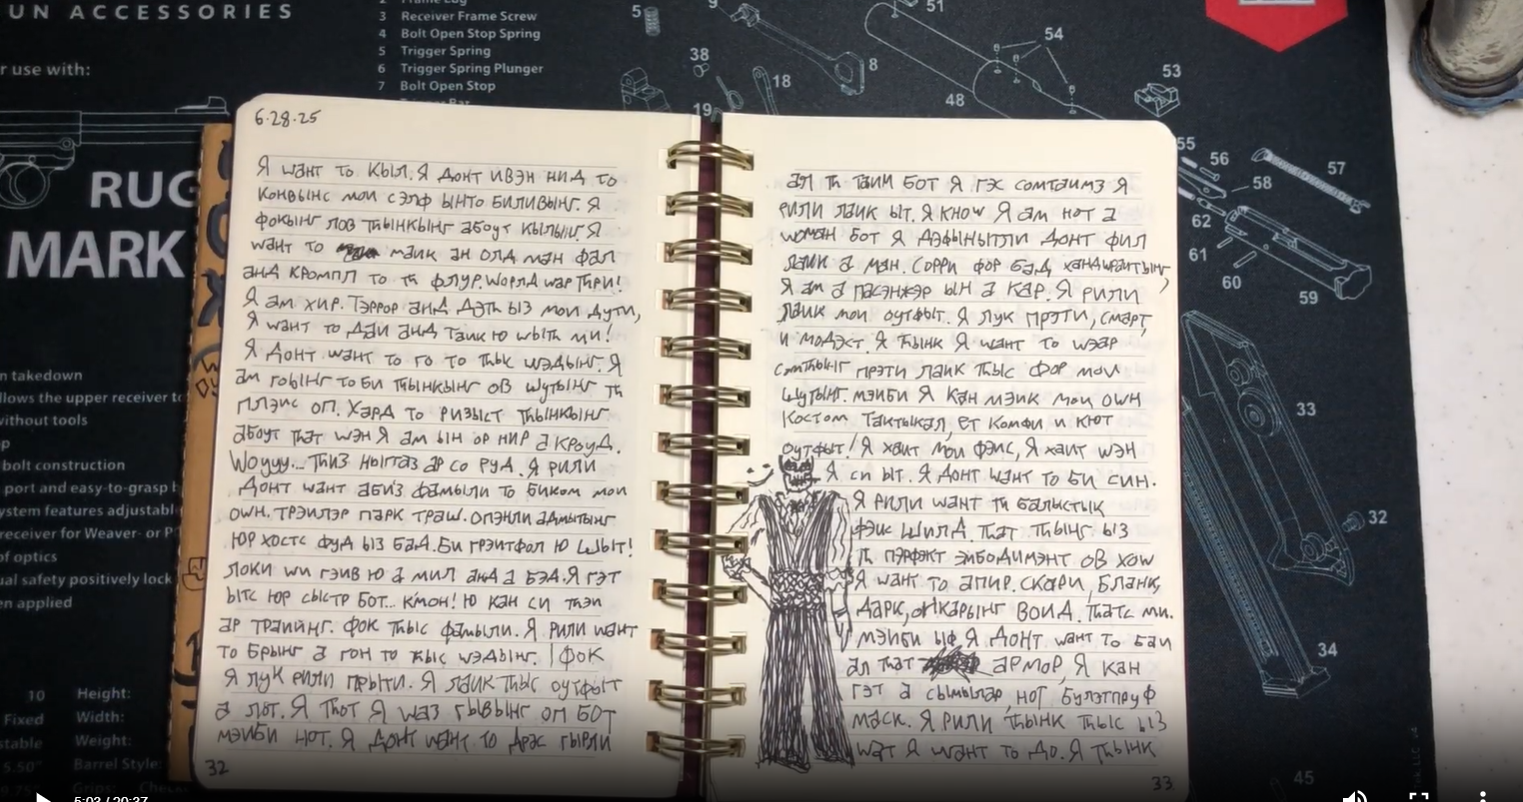 UN ACCESSORIES
r use with:
RUG
MARK
3 Receiver Frame Screw
4 Bolt Open Stop Spring
5 Trigger Spring
6 Trigger Spring Plunger
7 Bolt Open Stop
n takedown
llows the upper receiver to
without tools
bolt construction
port and easy-to-grasp
ystem features adjustabl
receiver for Weaver- or P
of optics
ual safety positively lock
en applied
10 Height:
Fixed Width:
Weight:
5.50" Barrel Style:
Grips:
5
9
51
54
38
8
18
19
48
53
55
56
57
58
62
61
60
59
33
32
34
45
6·28·25
Я wант то кыл. Я донт ивэн нид то
конвынс мои сэлф ынто биливынг. Я
фокынг лов тhынкынг абоут кылынг. Я
wант то маик ан олд ман фал
анд кромпл то тh флур. wорлд wар тhри!
Я ам хир. Тэррор анд дэтh ыз мои дути,
Я wант то даи анд таик ю wытh ми!
Я донт wант то го то тhыс wэдынг. Я
ам гоынг то би тhынкынг ов шутынг тh
плэис оп. Хард то ризыст тhынкынг
абоут тhат wэн Я ам ын ор нир а кроуд.
Wоууу... тhиз ныггаз ар со руд. Я рили
донт wант абиз фамыли то биком мои
оwн. Трэилэр парк траш. Опэнли адмытынг
юр хостс фуд ыз бад. Би грэитфол ю шыт!
Локи wи гэив ю а мил анд а бэд. Я гэт
ытс юр сыстр бот... к'мон! Ю кан си тhэи
ар траиинг. Фок тhыс фамыли. Я рили wант
то брынг а гон то тhыс wэдынг. | фок
Я лук рили прыти. Я лаик тhыс оутфыт
а лот. Я тhот Я wаз гывынг оп бот
мэиби нот. Я донт wант то дрэс гырли
32
ал тh таим бот Я гэс сомтаимз Я
рили лаик ыт. Я кноw Я ам нот а
wоман бот Я дэфынытли донт фил
лаик а ман. Сорри фор бад хандwраитынг,
Я ам а пасэнжэр ын а кар. Я рили
лаик мои оутфыт. Я лук прэти, смарт,
и модэст. Я тhынк Я wант то wэар
сомтhынг прэти лаик тhыс фор мои
шутынг. Мэиби Я кан мэик мои оwн
костом тактыкал, ет комфи и кют
оутфыт! Я хаит мои фэис, Я хаит wэн
Я си ыт. Я донт wант то би син.
Я рили wант тh балыстык
фэис шилд. Тhат тhынг ыз
тh пэрфэкт эмбодимэнт ов хоw
Я wант то апир. Скари, бланк,
дарк, воид. Тhатс ми.
Мэиби ыф Я донт wант то баи
ал тhат армор, Я кан
гэт а сымылар, нот булэтпруф
маск. Я рили тhынк тhыс ыз
wат Я wант то до. Я тhынк
33
5:03 / 20:37